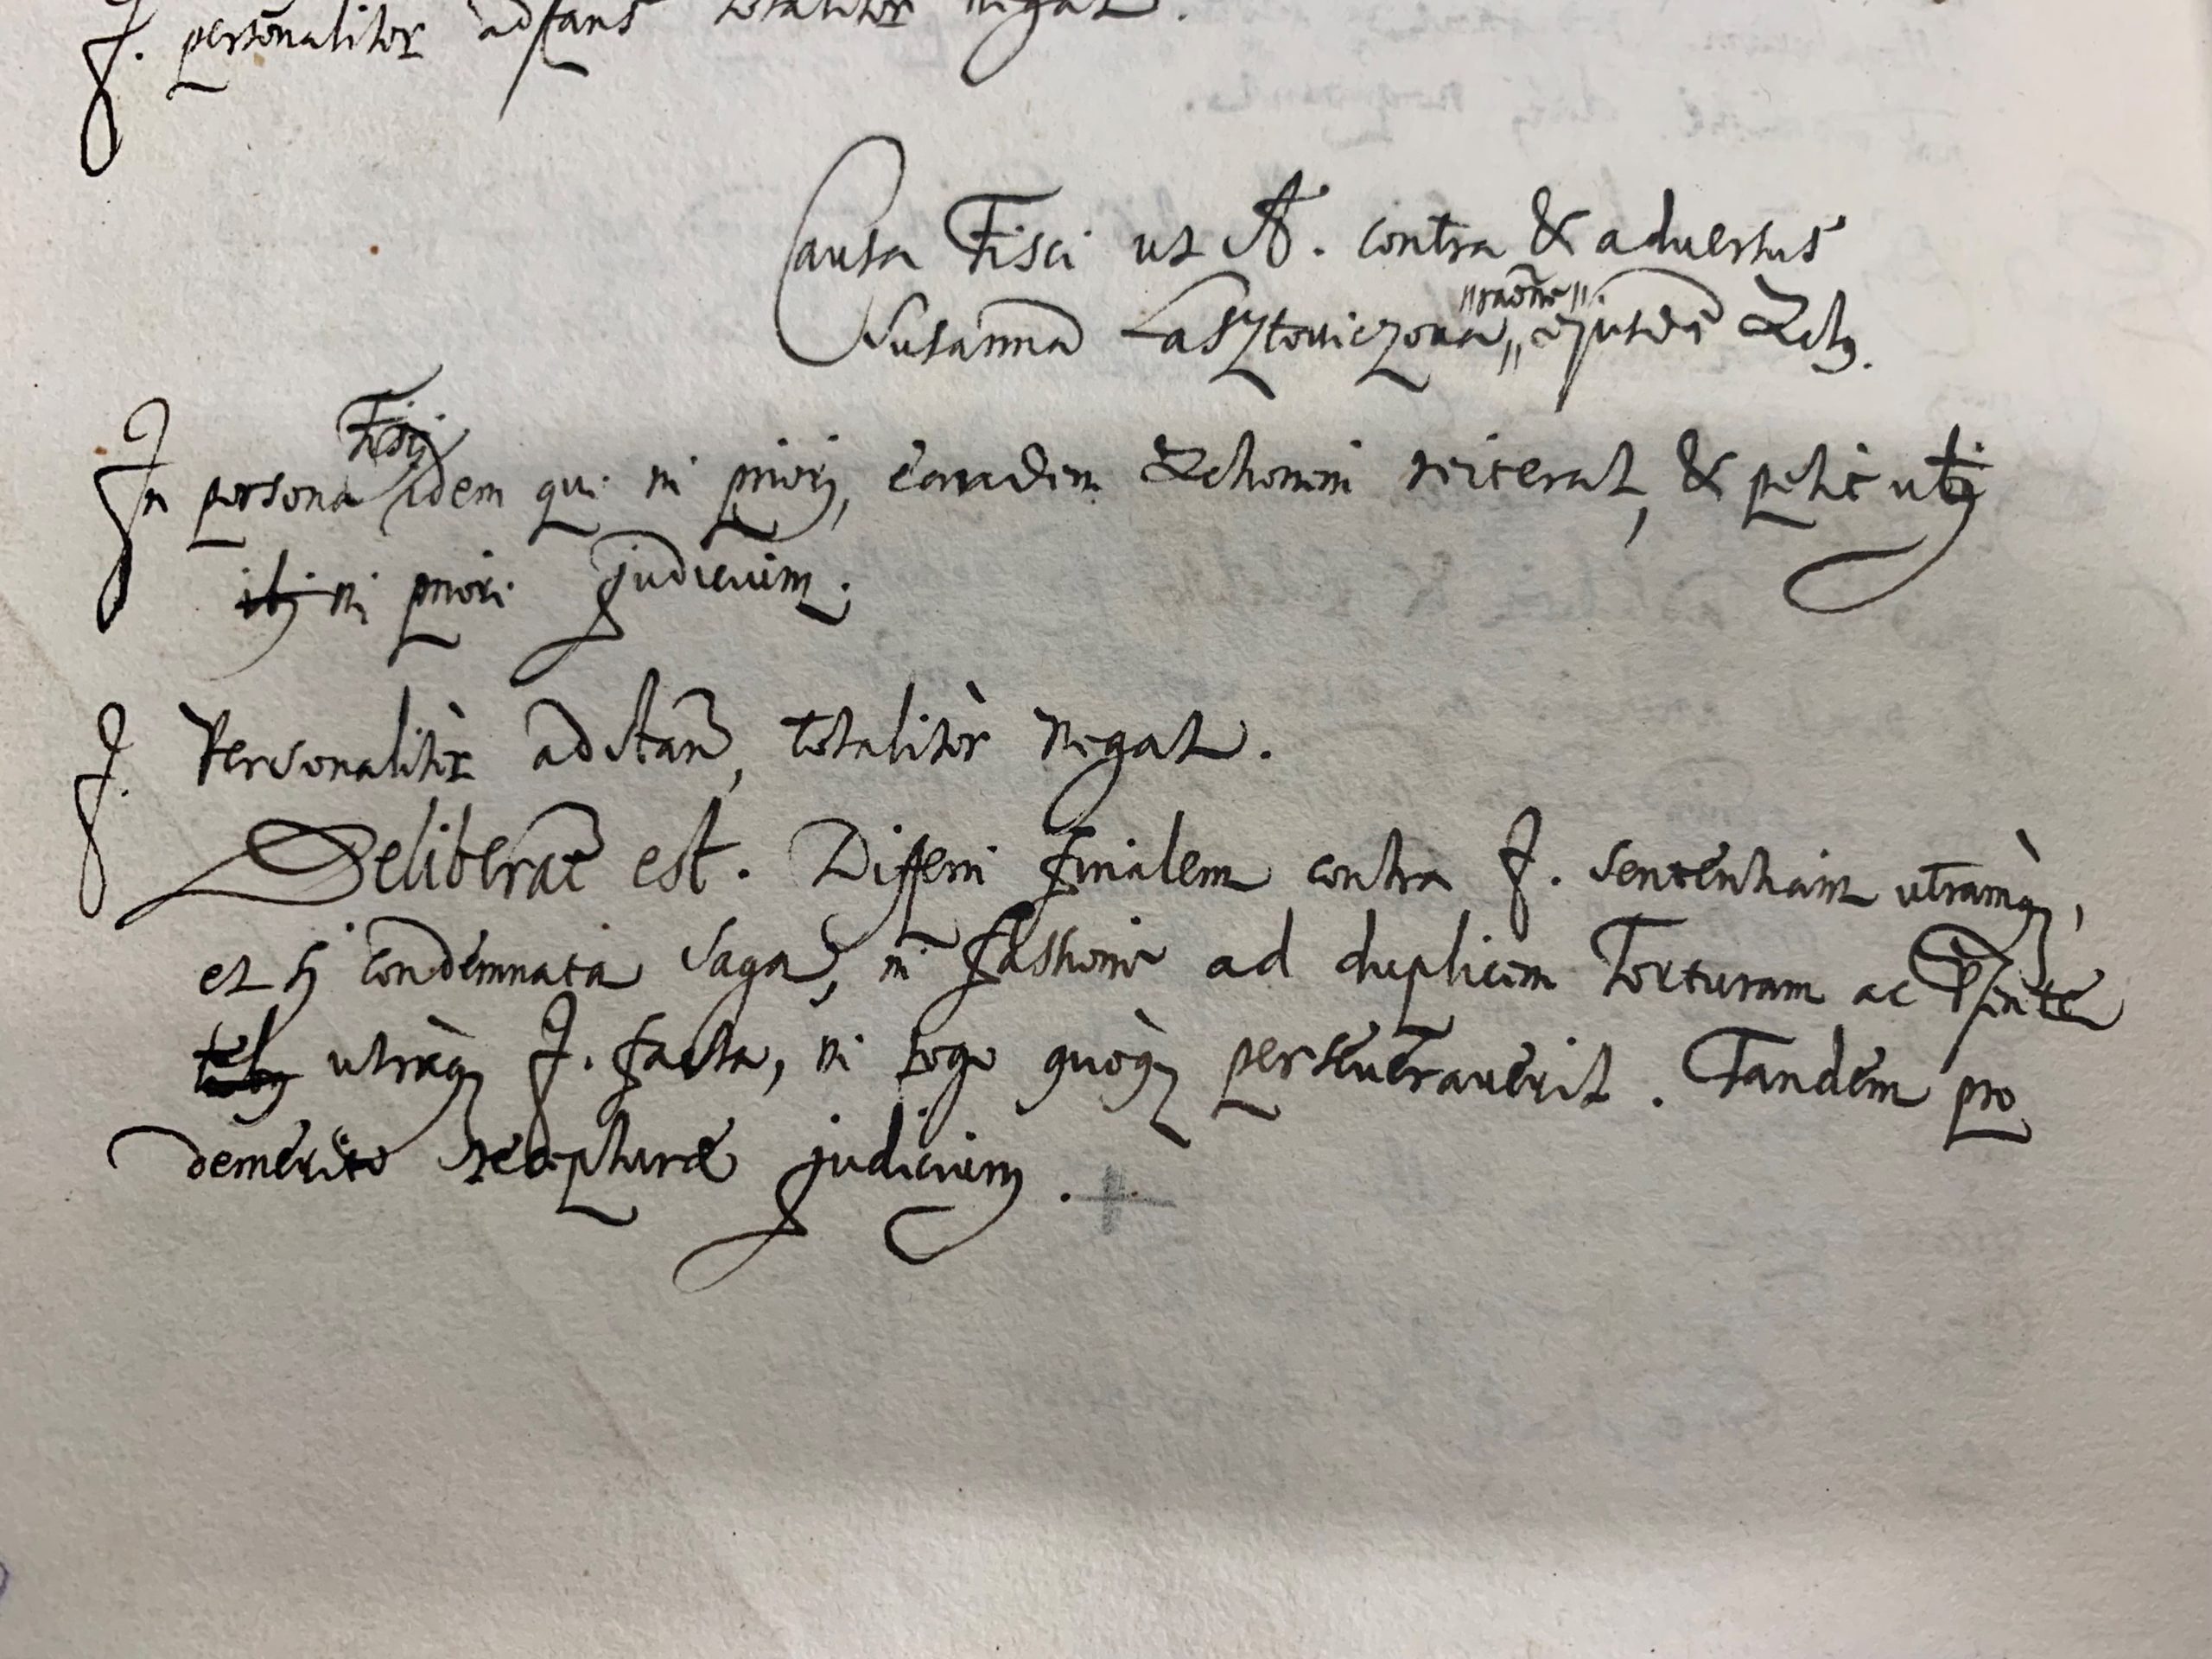 J. personaliter adstans totaliter negat.
Causa Fisci ut A. contra & aduersus
"raōne".
Susannā Lasztouiczoua, ejusdē
Fisci
In persona idem qui in priori, eandem reiterat, & petit uti
in priori judicium.
J. Personalitèr adstans, totalitèr negat.
Deliberat̄ est. Differri finalem contra J. sententiam utramq,
et si condemnata Saga, in fassione ad duplicem Torturam ac
utràq J. facta, in rogo quòq perseverauerit. Tandem pro
demerito judicium.